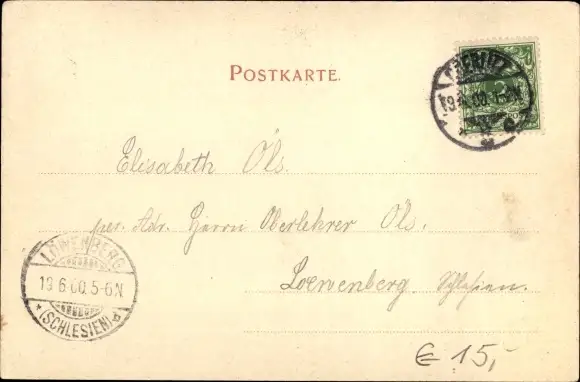 POSTKARTE.
19.6.00.
Elisabeth Öls.
per. Adr. Herrn Oberlehrer Öls.
Loewenberg Schlesien.
LÖWENBERG
19.6.00.5-6N
*(SCHLESIEN)*
€ 15,-